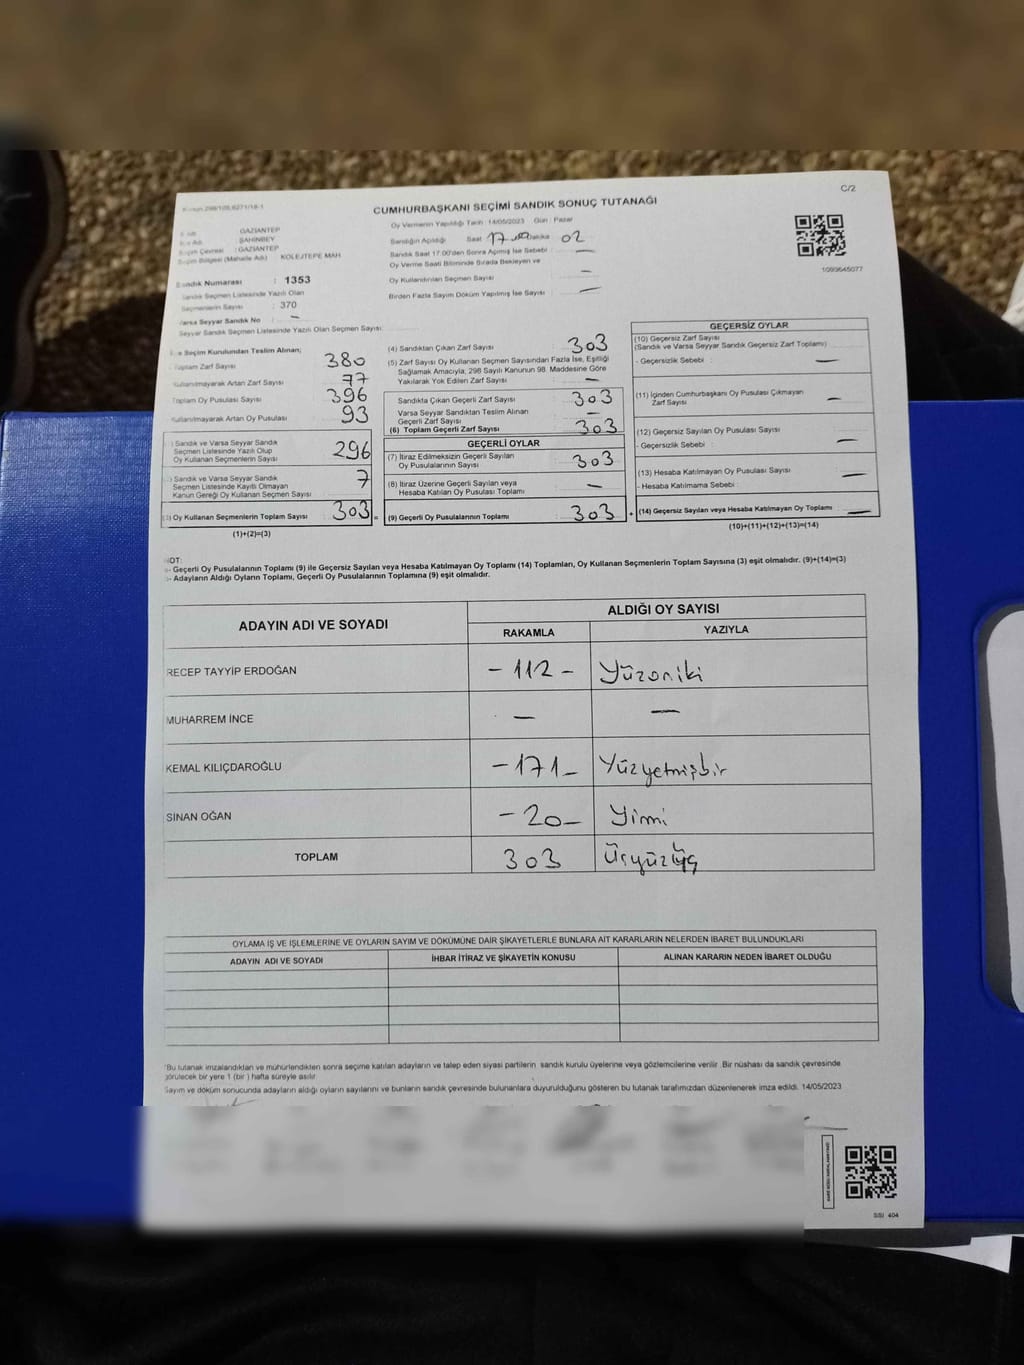 C/2
CUMHURBAŞKANI SEÇİMİ SANDIK SONUÇ TUTANAĞI
Oy Vermenin Yapıldığı Tarih :14/05/2023 Gün : Pazar
GAZİANTEP
ŞAHİNBEY
: GAZİANTEP
KOLEJTEPE MAH
Sandığın Açıldığı Saat 17 Dakika 02
Sandık Saat 17.00'den Sonra Açılmış İse Sebebi : —
Oy Verme Saati Bitiminde Sırada Bekleyen ve
Oy Kullandırılan Seçmen Sayısı : —
Birden Fazla Sayım Döküm Yapılmış İse Sayısı : —
1093645077
Sandık Numarası : 1353
Sandık Seçmen Listesinde Yazılı Olan
Seçmenlerin Sayısı : 370
Varsa Seyyar Sandık No : —
Seyyar Sandık Seçmen Listesinde Yazılı Olan Seçmen Sayısı:
İlçe Seçim Kurulundan Teslim Alınan;
Toplam Zarf Sayısı 380
Kullanılmayarak Artan Zarf Sayısı 77
Toplam Oy Pusulası Sayısı 396
Kullanılmayarak Artan Oy Pusulası 93
Sandık ve Varsa Seyyar Sandık
Seçmen Listesinde Yazılı Olup
Oy Kullanan Seçmenlerin Sayısı 296
Sandık ve Varsa Seyyar Sandık
Seçmen Listesinde Kayıtlı Olmayan
Kanun Gereği Oy Kullanan Seçmen Sayısı 7
(3) Oy Kullanan Seçmenlerin Toplam Sayısı 303 =
(1)+(2)=(3)
(4) Sandıktan Çıkan Zarf Sayısı 303
(5) Zarf Sayısı Oy Kullanan Seçmen Sayısından Fazla İse, Eşitliği
Sağlamak Amacıyla, 298 Sayılı Kanunun 98. Maddesine Göre
Yakılarak Yok Edilen Zarf Sayısı —
Sandıkta Çıkan Geçerli Zarf Sayısı 303
Varsa Seyyar Sandıktan Teslim Alınan
Geçerli Zarf Sayısı —
(6) Toplam Geçerli Zarf Sayısı 303
GEÇERLİ OYLAR
(7) İtiraz Edilmeksizin Geçerli Sayılan
Oy Pusulalarının Sayısı 303
(8) İtiraz Üzerine Geçerli Sayılan veya
Hesaba Katılan Oy Pusulası Toplamı —
(9) Geçerli Oy Pusulalarının Toplamı 303 +
GEÇERSİZ OYLAR
(10) Geçersiz Zarf Sayısı
(Sandık ve Varsa Seyyar Sandık Geçersiz Zarf Toplamı)
- Geçersizlik Sebebi : —
(11) İçinden Cumhurbaşkanı Oy Pusulası Çıkmayan
Zarf Sayısı —
(12) Geçersiz Sayılan Oy Pusulası Sayısı
- Geçersizlik Sebebi : —
(13) Hesaba Katılmayan Oy Pusulası Sayısı —
- Hesaba Katılmama Sebebi :
(14) Geçersiz Sayılan veya Hesaba Katılmayan Oy Toplamı —
(10)+(11)+(12)+(13)=(14)
NOT:
- Geçerli Oy Pusulalarının Toplamı (9) ile Geçersiz Sayılan veya Hesaba Katılmayan Oy Toplamı (14) Toplamları, Oy Kullanan Seçmenlerin Toplam Sayısına (3) eşit olmalıdır. (9)+(14)=(3)
- Adayların Aldığı Oyların Toplamı, Geçerli Oy Pusulalarının Toplamına (9) eşit olmalıdır.
ADAYIN ADI VE SOYADI ALDIĞI OY SAYISI
RAKAMLA YAZIYLA
RECEP TAYYİP ERDOĞAN - 112 - Yüzoniki
MUHARREM İNCE — —
KEMAL KILIÇDAROĞLU - 171 - Yüzyetmişbir
SİNAN OĞAN - 20 - Yirmi
TOPLAM 303 Üçyüzüç
OYLAMA İŞ VE İŞLEMLERİNE VE OYLARIN SAYIM VE DÖKÜMÜNE DAİR ŞİKAYETLERLE BUNLARA AİT KARARLARIN NELERDEN İBARET BULUNDUKLARI
ADAYIN ADI VE SOYADI İHBAR İTİRAZ VE ŞİKAYETİN KONUSU ALINAN KARARIN NEDEN İBARET OLDUĞU
Bu tutanak imzalandıktan ve mühürlendikten sonra seçime katılan adayların ve talep eden siyasi partilerin sandık kurulu üyelerine veya gözlemcilerine verilir. Bir nüshası da sandık çevresinde
görülecek bir yere 1 (bir) hafta süreyle asılır.
Sayım ve döküm sonucunda adayların aldığı oyların sayılarını ve bunların sandık çevresinde bulunanlara duyurulduğunu gösteren bu tutanak tarafımızdan düzenlenerek imza edildi. 14/05/2023
SSI 404